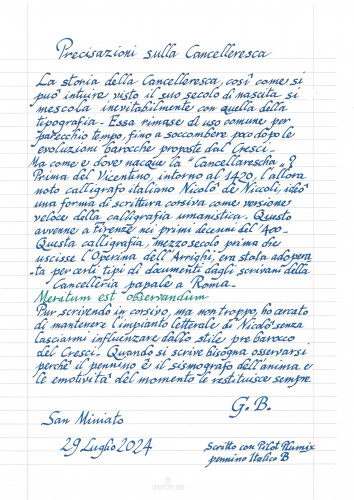 Precisazioni sulla Cancelleresca
La storia della Cancelleresca, così come si
può intuire visto il suo secolo di nascita si
mescola inevitabilmente con quella della
tipografia. Essa rimase di uso comune per
parecchio tempo, fino a soccombere poco dopo le
evoluzioni barocche proposte dal Cresci.
Ma come e dove nacque la "Cancellarescha"?
Prima del Vicentino, intorno al 1420, l'allora
noto calligrafo italiano Nicolò de Niccoli, ideò
una forma di scrittura corsiva come versione
veloce della calligrafia umanistica. Questo
avvenne a Firenze nei primi decenni del '400.
Questa calligrafia, mezzo secolo prima che
uscisse l'Operina dell'Arrighi, era stata adopera
ta per certi tipi di documenti dagli scrivani della
Cancelleria papale a Roma.
Meritum est observandum
Pur scrivendo in corsivo, ma non troppo, ho cercato
di mantenere l'impianto letterale di Nicolò senza
lasciarmi influenzare dallo stile pre barocco
del Cresci. Quando si scrive bisogna osservarsi
perché il pennino è il sismografo dell'anima e
le emotività del momento le restituisce sempre.
G.B.
San Miniato
29 Luglio 2024
Scritto con Pilot Plumix
pennino Italico B